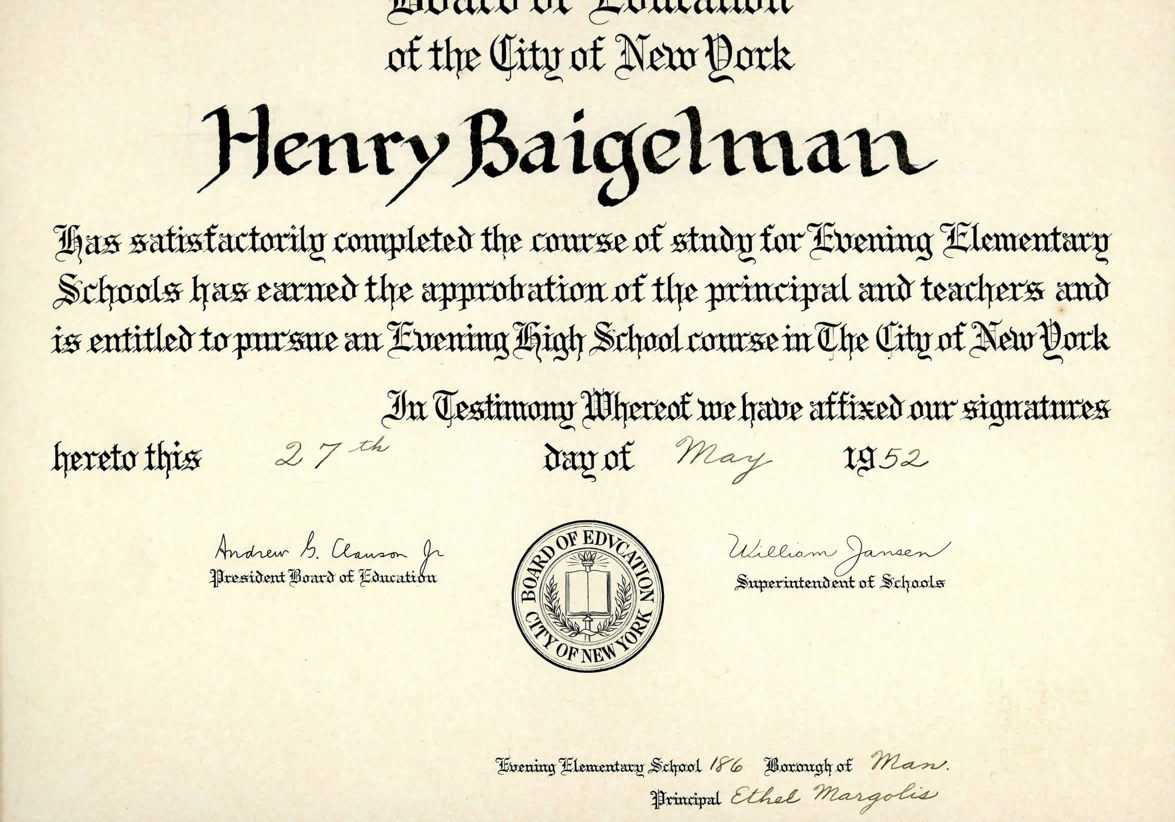 Board of Education
of the City of New York
Henry Baigelman
Has satisfactorily completed the course of study for Evening Elementary
Schools has earned the approbation of the principal and teachers and
is entitled to pursue an Evening High School course in The City of New York
In Testimony Whereof we have affixed our signatures
hereto this 27th day of May 1952
Andrew G. Clauson Jr
President Board of Education
BOARD OF EDVCATION
CITY OF NEW YORK
William Jansen
Superintendent of Schools
Evening Elementary School 186 Borough of Man.
Principal Ethel Margolis